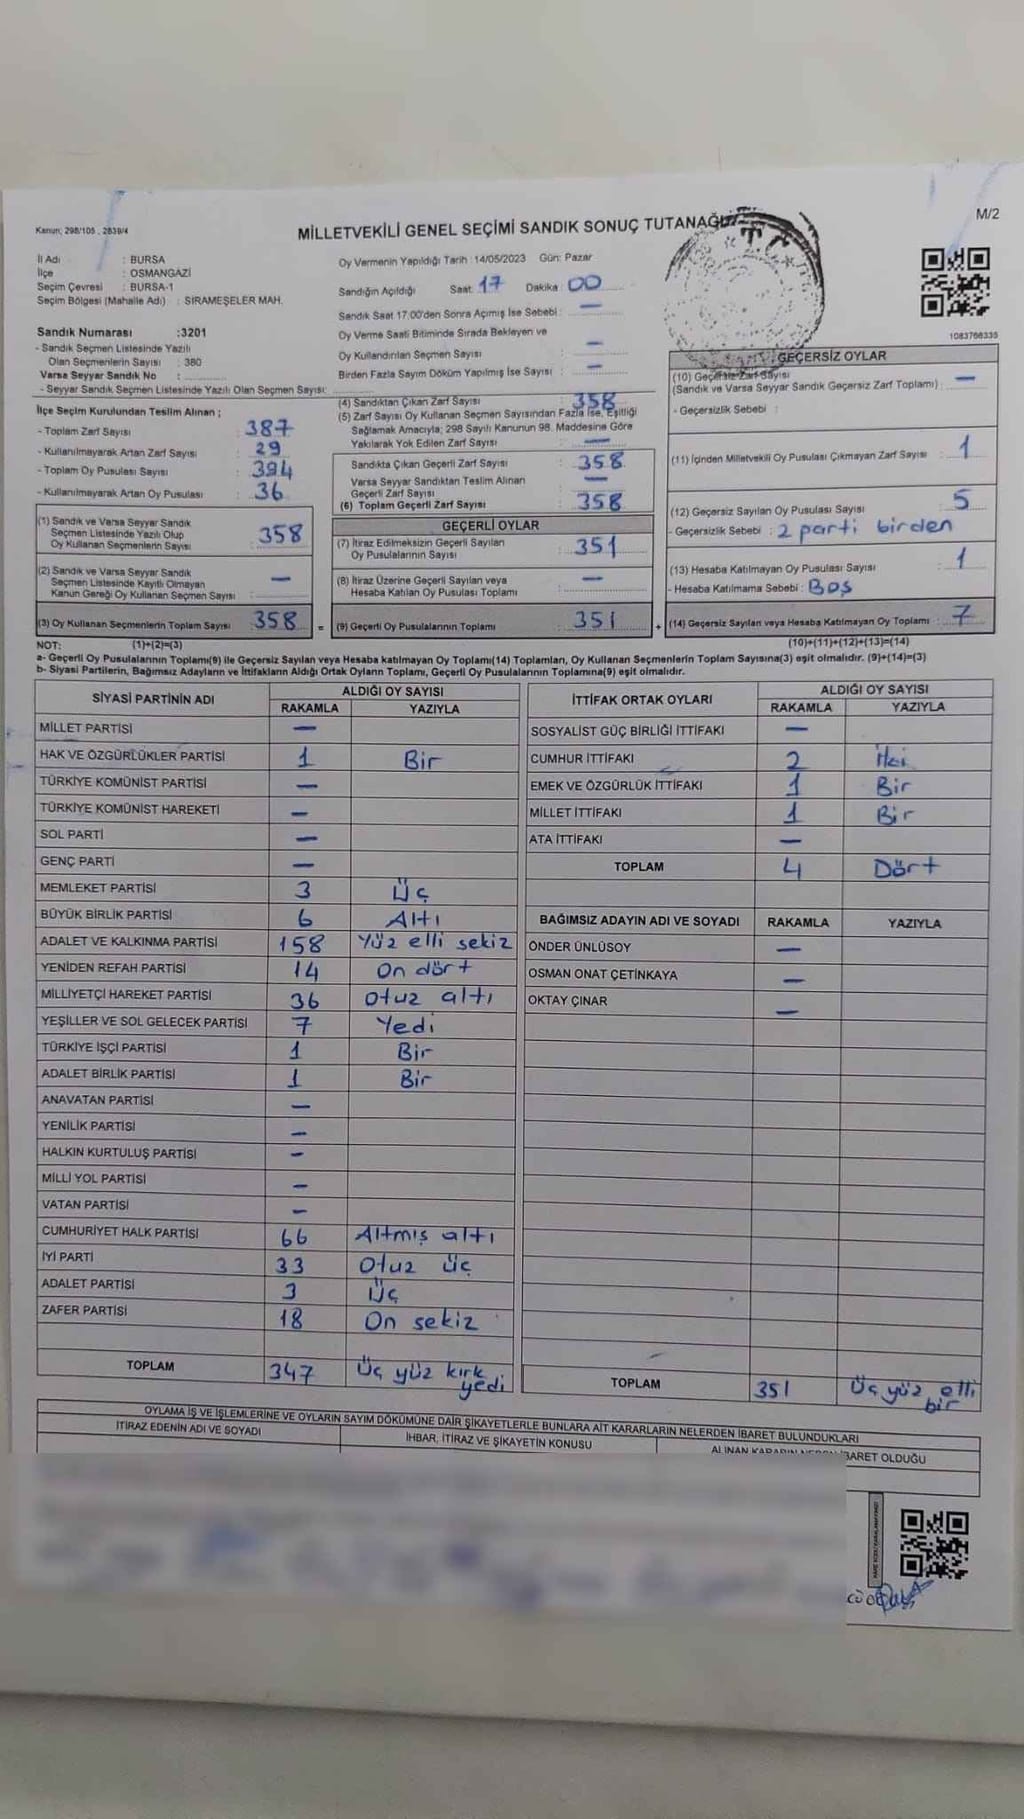 M/2
Kanun; 298/105 , 2839/4
MİLLETVEKİLİ GENEL SEÇİMİ SANDIK SONUÇ TUTANAĞI
T.C.
İl Adı : BURSA
İlçe : OSMANGAZİ
Seçim Çevresi : BURSA-1
Seçim Bölgesi (Mahalle Adı) : SIRAMEŞELER MAH.
Sandık Numarası :3201
- Sandık Seçmen Listesinde Yazılı
Olan Seçmenlerin Sayısı : 380
Varsa Seyyar Sandık No :
- Seyyar Sandık Seçmen Listesinde Yazılı Olan Seçmen Sayısı:
Oy Vermenin Yapıldığı Tarih :14/05/2023 Gün: Pazar
Sandığın Açıldığı Saat: 17 Dakika : 00
Sandık Saat 17.00'den Sonra Açımış İse Sebebi : —
Oy Verme Saati Bitiminde Sırada Bekleyen ve
Oy Kullandırılan Seçmen Sayısı : —
Birden Fazla Sayım Döküm Yapılmış İse Sayısı : —
1083766335
İlçe Seçim Kurulundan Teslim Alınan ;
- Toplam Zarf Sayısı : 387
- Kullanılmayarak Artan Zarf Sayısı : 29
- Toplam Oy Pusulası Sayısı : 394
- Kullanılmayarak Artan Oy Pusulası : 36
(1) Sandık ve Varsa Seyyar Sandık
Seçmen Listesinde Yazılı Olup
Oy Kullanan Seçmenlerin Sayısı : 358
(2) Sandık ve Varsa Seyyar Sandık
Seçmen Listesinde Kayıtlı Olmayan
Kanun Gereği Oy Kullanan Seçmen Sayısı : —
(3) Oy Kullanan Seçmenlerin Toplam Sayısı : 358 =
(4) Sandıktan Çıkan Zarf Sayısı : 358
(5) Zarf Sayısı Oy Kullanan Seçmen Sayısından Fazla İse, Eşitliği
Sağlamak Amacıyla; 298 Sayılı Kanunun 98. Maddesine Göre
Yakılarak Yok Edilen Zarf Sayısı : —
Sandıkta Çıkan Geçerli Zarf Sayısı : 358
Varsa Seyyar Sandıktan Teslim Alınan
Geçerli Zarf Sayısı : —
(6) Toplam Geçerli Zarf Sayısı : 358
GEÇERLİ OYLAR
(7) İtiraz Edilmeksizin Geçerli Sayılan
Oy Pusulalarının Sayısı : 351
(8) İtiraz Üzerine Geçerli Sayılan veya
Hesaba Katılan Oy Pusulası Toplamı : —
(9) Geçerli Oy Pusulalarının Toplamı : 351 +
GEÇERSİZ OYLAR
(10) Geçersiz Zarf Sayısı
(Sandık ve Varsa Seyyar Sandık Geçersiz Zarf Toplamı) : —
- Geçersizlik Sebebi :
(11) İçinden Milletvekili Oy Pusulası Çıkmayan Zarf Sayısı : 1
(12) Geçersiz Sayılan Oy Pusulası Sayısı : 5
- Geçersizlik Sebebi : 2 parti birden
(13) Hesaba Katılmayan Oy Pusulası Sayısı : 1
- Hesaba Katılmama Sebebi : Boş
(14) Geçersiz Sayılan veya Hesaba Katılmayan Oy Toplamı : 7
NOT: (1)+(2)=(3) (10)+(11)+(12)+(13)=(14)
a- Geçerli Oy Pusulalarının Toplamı(9) ile Geçersiz Sayılan veya Hesaba katılmayan Oy Toplamı(14) Toplamları, Oy Kullanan Seçmenlerin Toplam Sayısına(3) eşit olmalıdır. (9)+(14)=(3)
b- Siyasi Partilerin, Bağımsız Adayların ve İttifakların Aldığı Ortak Oyların Toplamı, Geçerli Oy Pusulalarının Toplamına(9) eşit olmalıdır.
SİYASİ PARTİNİN ADI ALDIĞI OY SAYISI
RAKAMLA YAZIYLA
MİLLET PARTİSİ —
HAK VE ÖZGÜRLÜKLER PARTİSİ 1 Bir
TÜRKİYE KOMÜNİST PARTİSİ —
TÜRKİYE KOMÜNİST HAREKETİ —
SOL PARTİ —
GENÇ PARTİ —
MEMLEKET PARTİSİ 3 Üç
BÜYÜK BİRLİK PARTİSİ 6 Altı
ADALET VE KALKINMA PARTİSİ 158 Yüz elli sekiz
YENİDEN REFAH PARTİSİ 14 On dört
MİLLİYETÇİ HAREKET PARTİSİ 36 Otuz altı
YEŞİLLER VE SOL GELECEK PARTİSİ 7 Yedi
TÜRKİYE İŞÇİ PARTİSİ 1 Bir
ADALET BİRLİK PARTİSİ 1 Bir
ANAVATAN PARTİSİ —
YENİLİK PARTİSİ —
HALKIN KURTULUŞ PARTİSİ —
MİLLİ YOL PARTİSİ —
VATAN PARTİSİ —
CUMHURİYET HALK PARTİSİ 66 Altmış altı
İYİ PARTİ 33 Otuz üç
ADALET PARTİSİ 3 Üç
ZAFER PARTİSİ 18 On sekiz
TOPLAM 347 Üç yüz kırk yedi
İTTİFAK ORTAK OYLARI ALDIĞI OY SAYISI
RAKAMLA YAZIYLA
SOSYALİST GÜÇ BİRLİĞİ İTTİFAKI —
CUMHUR İTTİFAKI 2 İki
EMEK VE ÖZGÜRLÜK İTTİFAKI 1 Bir
MİLLET İTTİFAKI 1 Bir
ATA İTTİFAKI —
TOPLAM 4 Dört
BAĞIMSIZ ADAYIN ADI VE SOYADI RAKAMLA YAZIYLA
ÖNDER ÜNLÜSOY —
OSMAN ONAT ÇETİNKAYA —
OKTAY ÇINAR —
TOPLAM 351 Üç yüz elli bir
OYLAMA İŞ VE İŞLEMLERİNE VE OYLARIN SAYIM DÖKÜMÜNE DAİR ŞİKAYETLERLE BUNLARA AİT KARARLARIN NELERDEN İBARET BULUNDUKLARI
İTİRAZ EDENİN ADI VE SOYADI İHBAR, İTİRAZ VE ŞİKAYETİN KONUSU ALINAN KARARIN NEDEN İBARET OLDUĞU